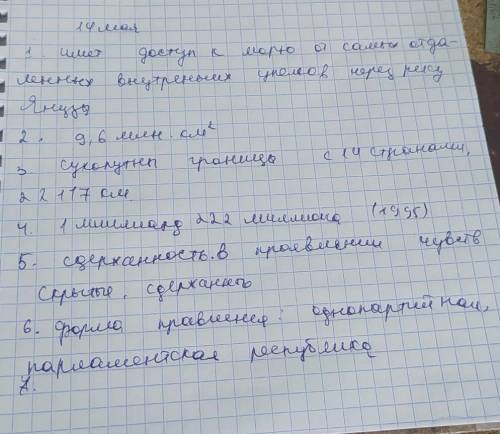 14 мая
1. имет доступ к морю от самых отда-
ленных внутренних уголков через реку
Янцзы
2. 9,6 млн. км²
3. сухопутны границы с 14 странами,
22 117 км
4. 1 миллиард 222 миллиона (1995)
5. сдержанность в проявлении чувств
скрытые, сдержанно
6. форма правления: однопартийная,
парламентская республика
7.